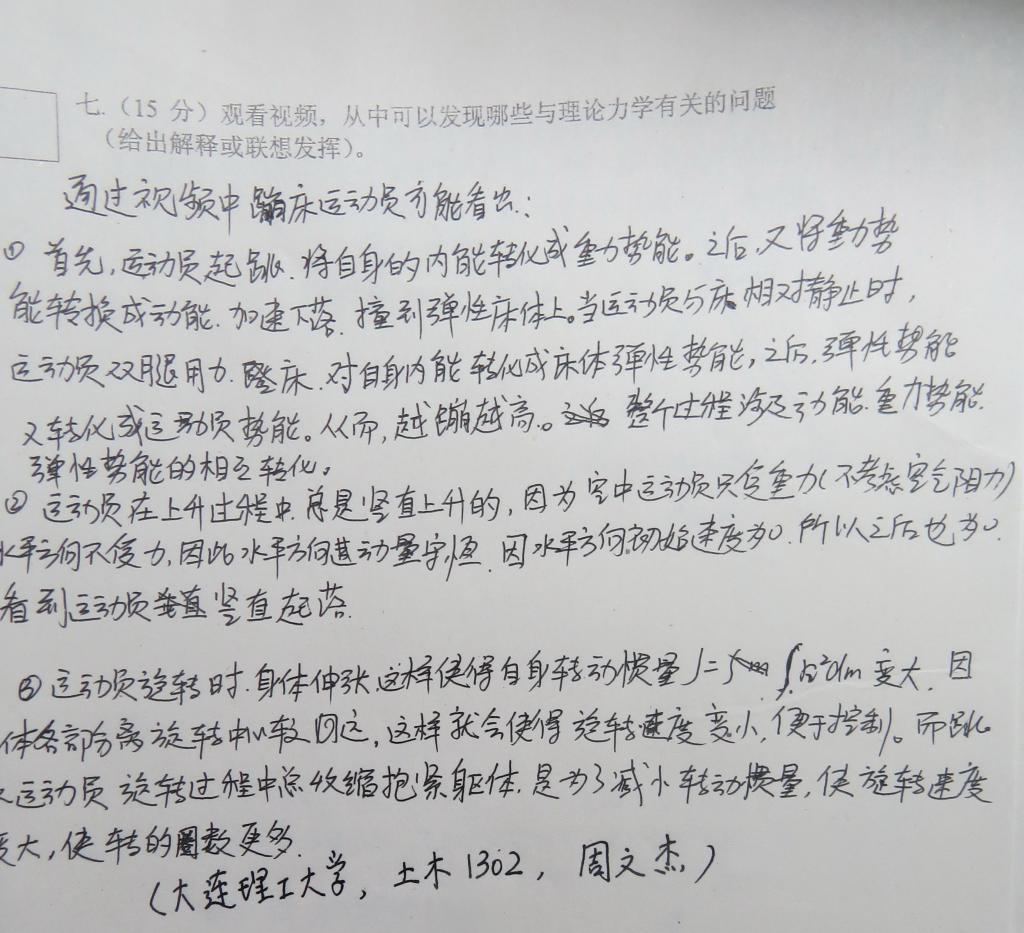 七.（15 分）观看视频，从中可以发现哪些与理论力学有关的问题
（给出解释或联想发挥）。
通过视频中蹦床运动员可能看出：
① 首先，运动员起跳、将自身的内能转化成重力势能。之后，又将重力势
能转换成动能、加速下落、撞到弹性床体上。当运动员与床相对静止时，
运动员双腿用力、蹬床、对自身内能转化成床体弹性势能，之后，弹性势能
又转化成运动员势能。从而，越蹦越高。整个过程涉及动能、重力势能、
弹性势能的相互转化。
② 运动员在上升过程中、总是竖直上升的，因为空中运动员只受重力（不考虑空气阻力）
水平方向不受力，因此水平方向其动量守恒、因水平方向初始速度为0、所以之后也为0、
看到运动员竖直起落、
③ 运动员旋转时、身体伸张、这样使得自身转动惯量 J=∫r²dm 变大、因
体各部分离旋转中心较远，这样就会使得旋转速度变小，便于控制。而跳
运动员旋转过程中总收缩抱紧躯体、是为了减小转动惯量，使旋转速度
变大，使转的圈数更多、
（大连理工大学，土木1302，周文杰）